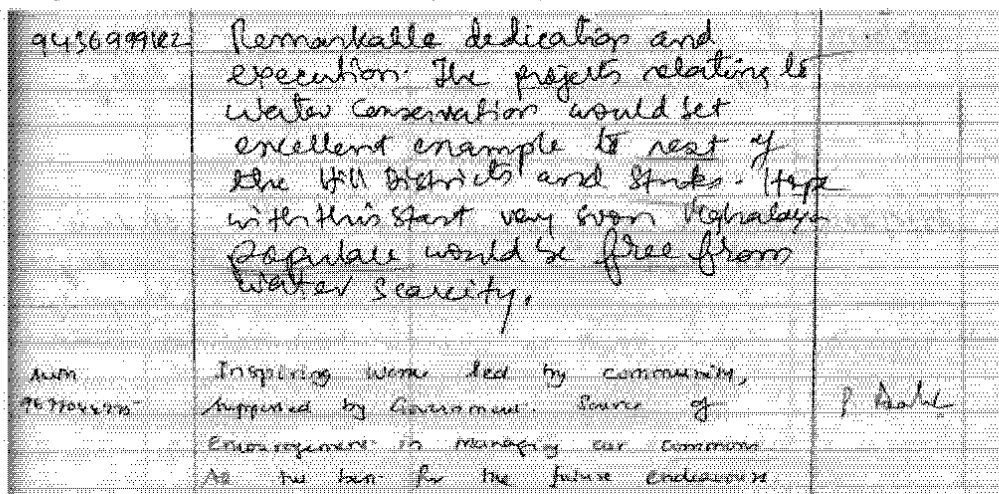 Remarkable dedication and
execution. The projects relating to
water conservation would set
excellent example to rest of
the Hill Districts and States. Hope
with this start very soon Meghalaya
populace would be free from
water scarcity.
Inspiring work led by community,
supported by Government. Source of
Encouragement in managing our commons
for the future endeavours